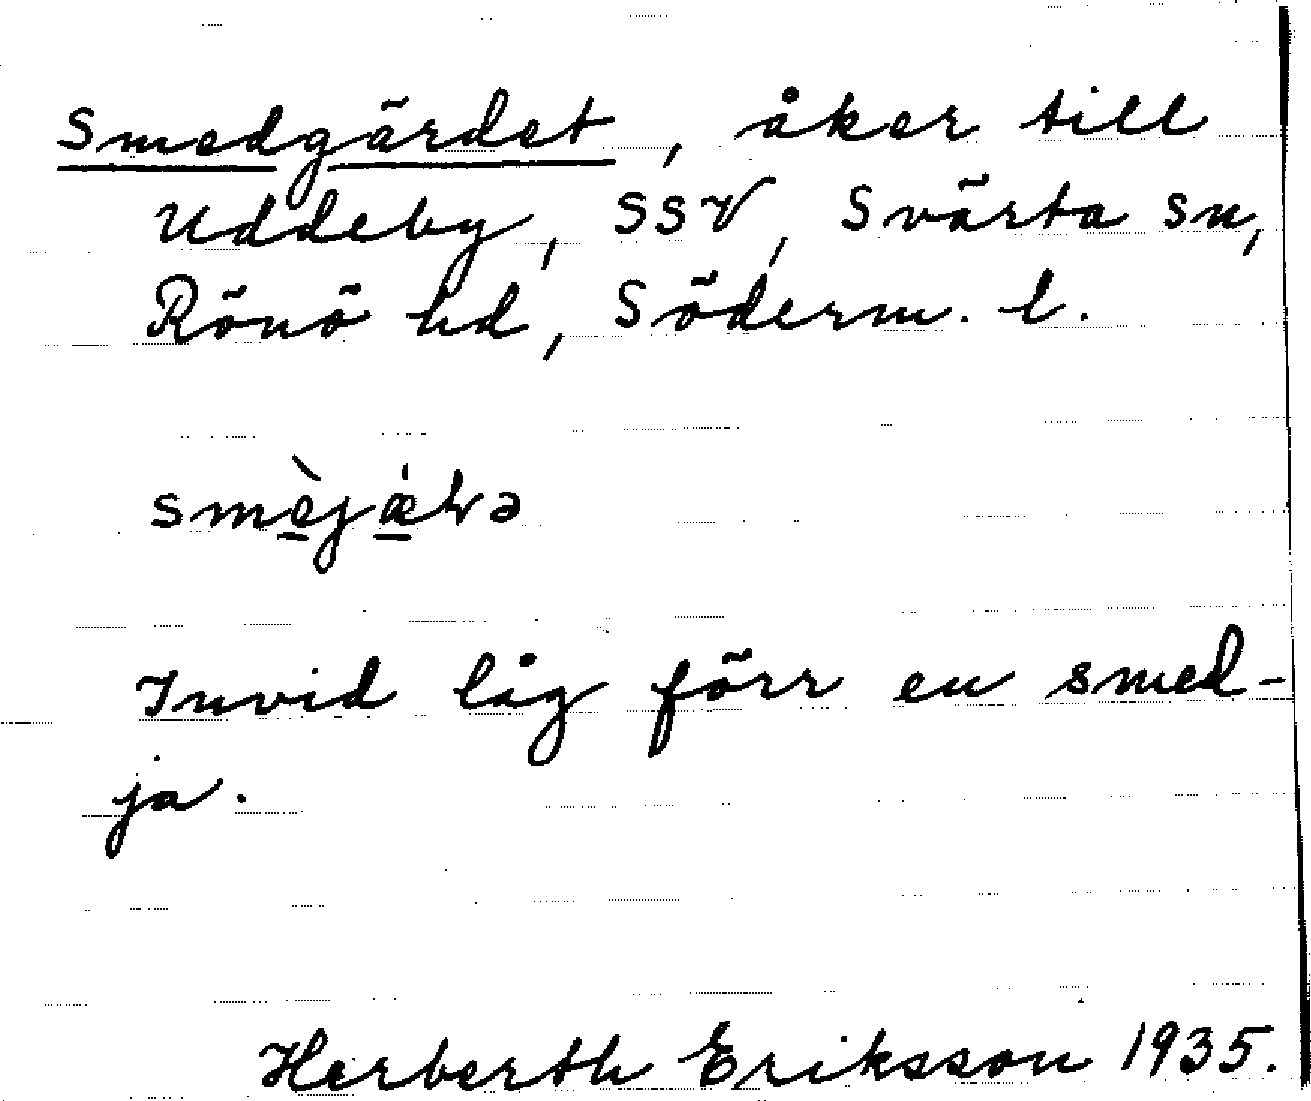 Smedgärdet, åker till
Uddeby, SSV, Svärta sn,
Rönö hd, Söderm. l.
Invid låg förr en smed-
ja.
Herberth Eriksson 1935.